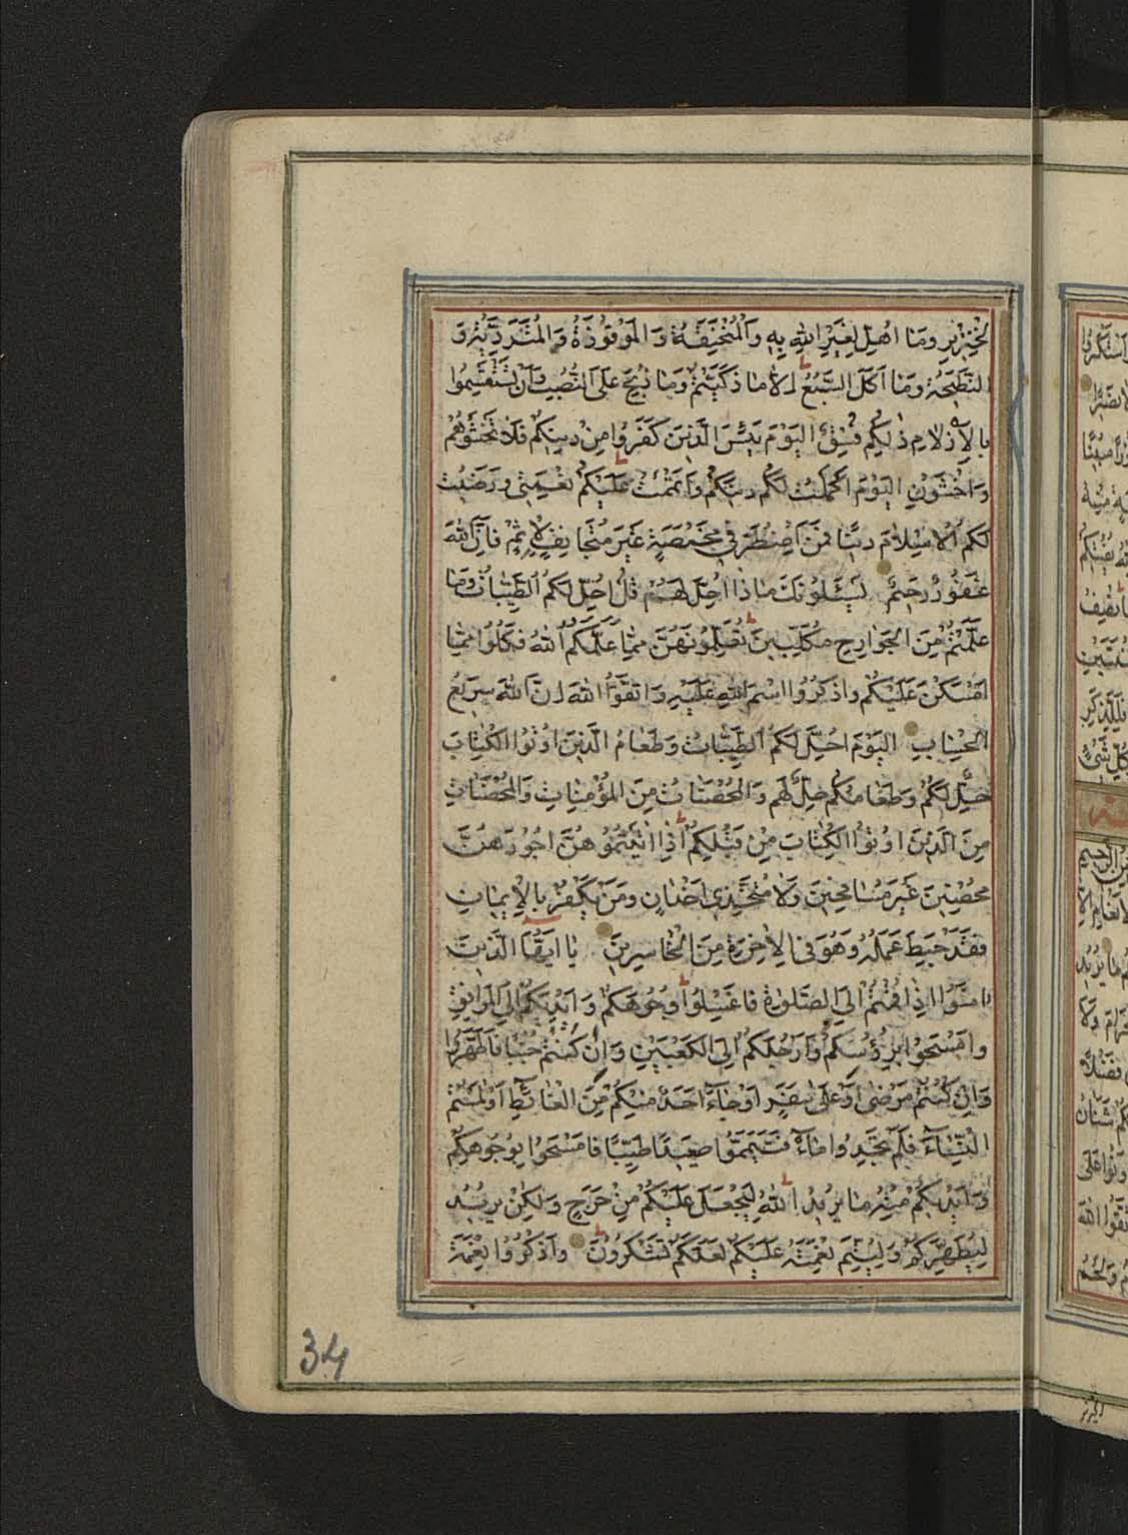 الْخِنْزِيرِ وَمَا اُهِلَّ لِغَيْرِ اللّٰهِ بِهٖ وَالْمُنْخَنِقَةُ وَالْمَوْقُوذَةُ وَالْمُتَرَدِّيَةُ وَ
النَّطِيحَةُ وَمَا اَكَلَ السَّبُعُ اِلَّا مَا ذَكَّيْتُمْ وَمَا ذُبِحَ عَلَى النُّصُبِ وَاَنْ تَسْتَقْسِمُوا
بِالْاَزْلَامِ ذٰلِكُمْ فِسْقٌ اَلْيَوْمَ يَئِسَ الَّذِينَ كَفَرُوا مِنْ دِينِكُمْ فَلَا تَخْشَوْهُمْ
وَاخْشَوْنِ اَلْيَوْمَ اَكْمَلْتُ لَكُمْ دِينَكُمْ وَاَتْمَمْتُ عَلَيْكُمْ نِعْمَتِى وَرَضِيتُ
لَكُمُ الْاِسْلَامَ دِينًا فَمَنِ اضْطُرَّ فِى مَخْمَصَةٍ غَيْرَ مُتَجَانِفٍ لِاِثْمٍ فَاِنَّ اللّٰهَ
غَفُورٌ رَحِيمٌ يَسْـَٔلُونَكَ مَاذَا اُحِلَّ لَهُمْ قُلْ اُحِلَّ لَكُمُ الطَّيِّبَاتُ وَمَا
عَلَّمْتُمْ مِنَ الْجَوَارِحِ مُكَلِّبِينَ تُعَلِّمُونَهُنَّ مِمَّا عَلَّمَكُمُ اللّٰهُ فَكُلُوا مِمَّا
اَمْسَكْنَ عَلَيْكُمْ وَاذْكُرُوا اسْمَ اللّٰهِ عَلَيْهِ وَاتَّقُوا اللّٰهَ اِنَّ اللّٰهَ سَرِيعُ
الْحِسَابِ اَلْيَوْمَ اُحِلَّ لَكُمُ الطَّيِّبَاتُ وَطَعَامُ الَّذِينَ اُوتُوا الْكِتَابَ
حِلٌّ لَكُمْ وَطَعَامُكُمْ حِلٌّ لَهُمْ وَالْمُحْصَنَاتُ مِنَ الْمُؤْمِنَاتِ وَالْمُحْصَنَاتُ
مِنَ الَّذِينَ اُوتُوا الْكِتَابَ مِنْ قَبْلِكُمْ اِذَا اٰتَيْتُمُوهُنَّ اُجُورَهُنَّ
مُحْصِنِينَ غَيْرَ مُسَافِحِينَ وَلَا مُتَّخِذِى اَخْدَانٍ وَمَنْ يَكْفُرْ بِالْاِيمَانِ
فَقَدْ حَبِطَ عَمَلُهُ وَهُوَ فِى الْاٰخِرَةِ مِنَ الْخَاسِرِينَ يَا اَيُّهَا الَّذِينَ
اٰمَنُوا اِذَا قُمْتُمْ اِلَى الصَّلٰوةِ فَاغْسِلُوا وُجُوهَكُمْ وَاَيْدِيَكُمْ اِلَى الْمَرَافِقِ
وَامْسَحُوا بِرُؤُسِكُمْ وَاَرْجُلَكُمْ اِلَى الْكَعْبَيْنِ وَاِنْ كُنْتُمْ جُنُبًا فَاطَّهَّرُوا
وَاِنْ كُنْتُمْ مَرْضٰى اَوْ عَلٰى سَفَرٍ اَوْ جَاءَ اَحَدٌ مِنْكُمْ مِنَ الْغَائِطِ اَوْ لٰمَسْتُمُ
النِّسَاءَ فَلَمْ تَجِدُوا مَاءً فَتَيَمَّمُوا صَعِيدًا طَيِّبًا فَامْسَحُوا بِوُجُوهِكُمْ
وَاَيْدِيكُمْ مِنْهُ مَا يُرِيدُ اللّٰهُ لِيَجْعَلَ عَلَيْكُمْ مِنْ حَرَجٍ وَلٰكِنْ يُرِيدُ
لِيُطَهِّرَكُمْ وَلِيُتِمَّ نِعْمَتَهُ عَلَيْكُمْ لَعَلَّكُمْ تَشْكُرُونَ وَاذْكُرُوا نِعْمَةَ
34